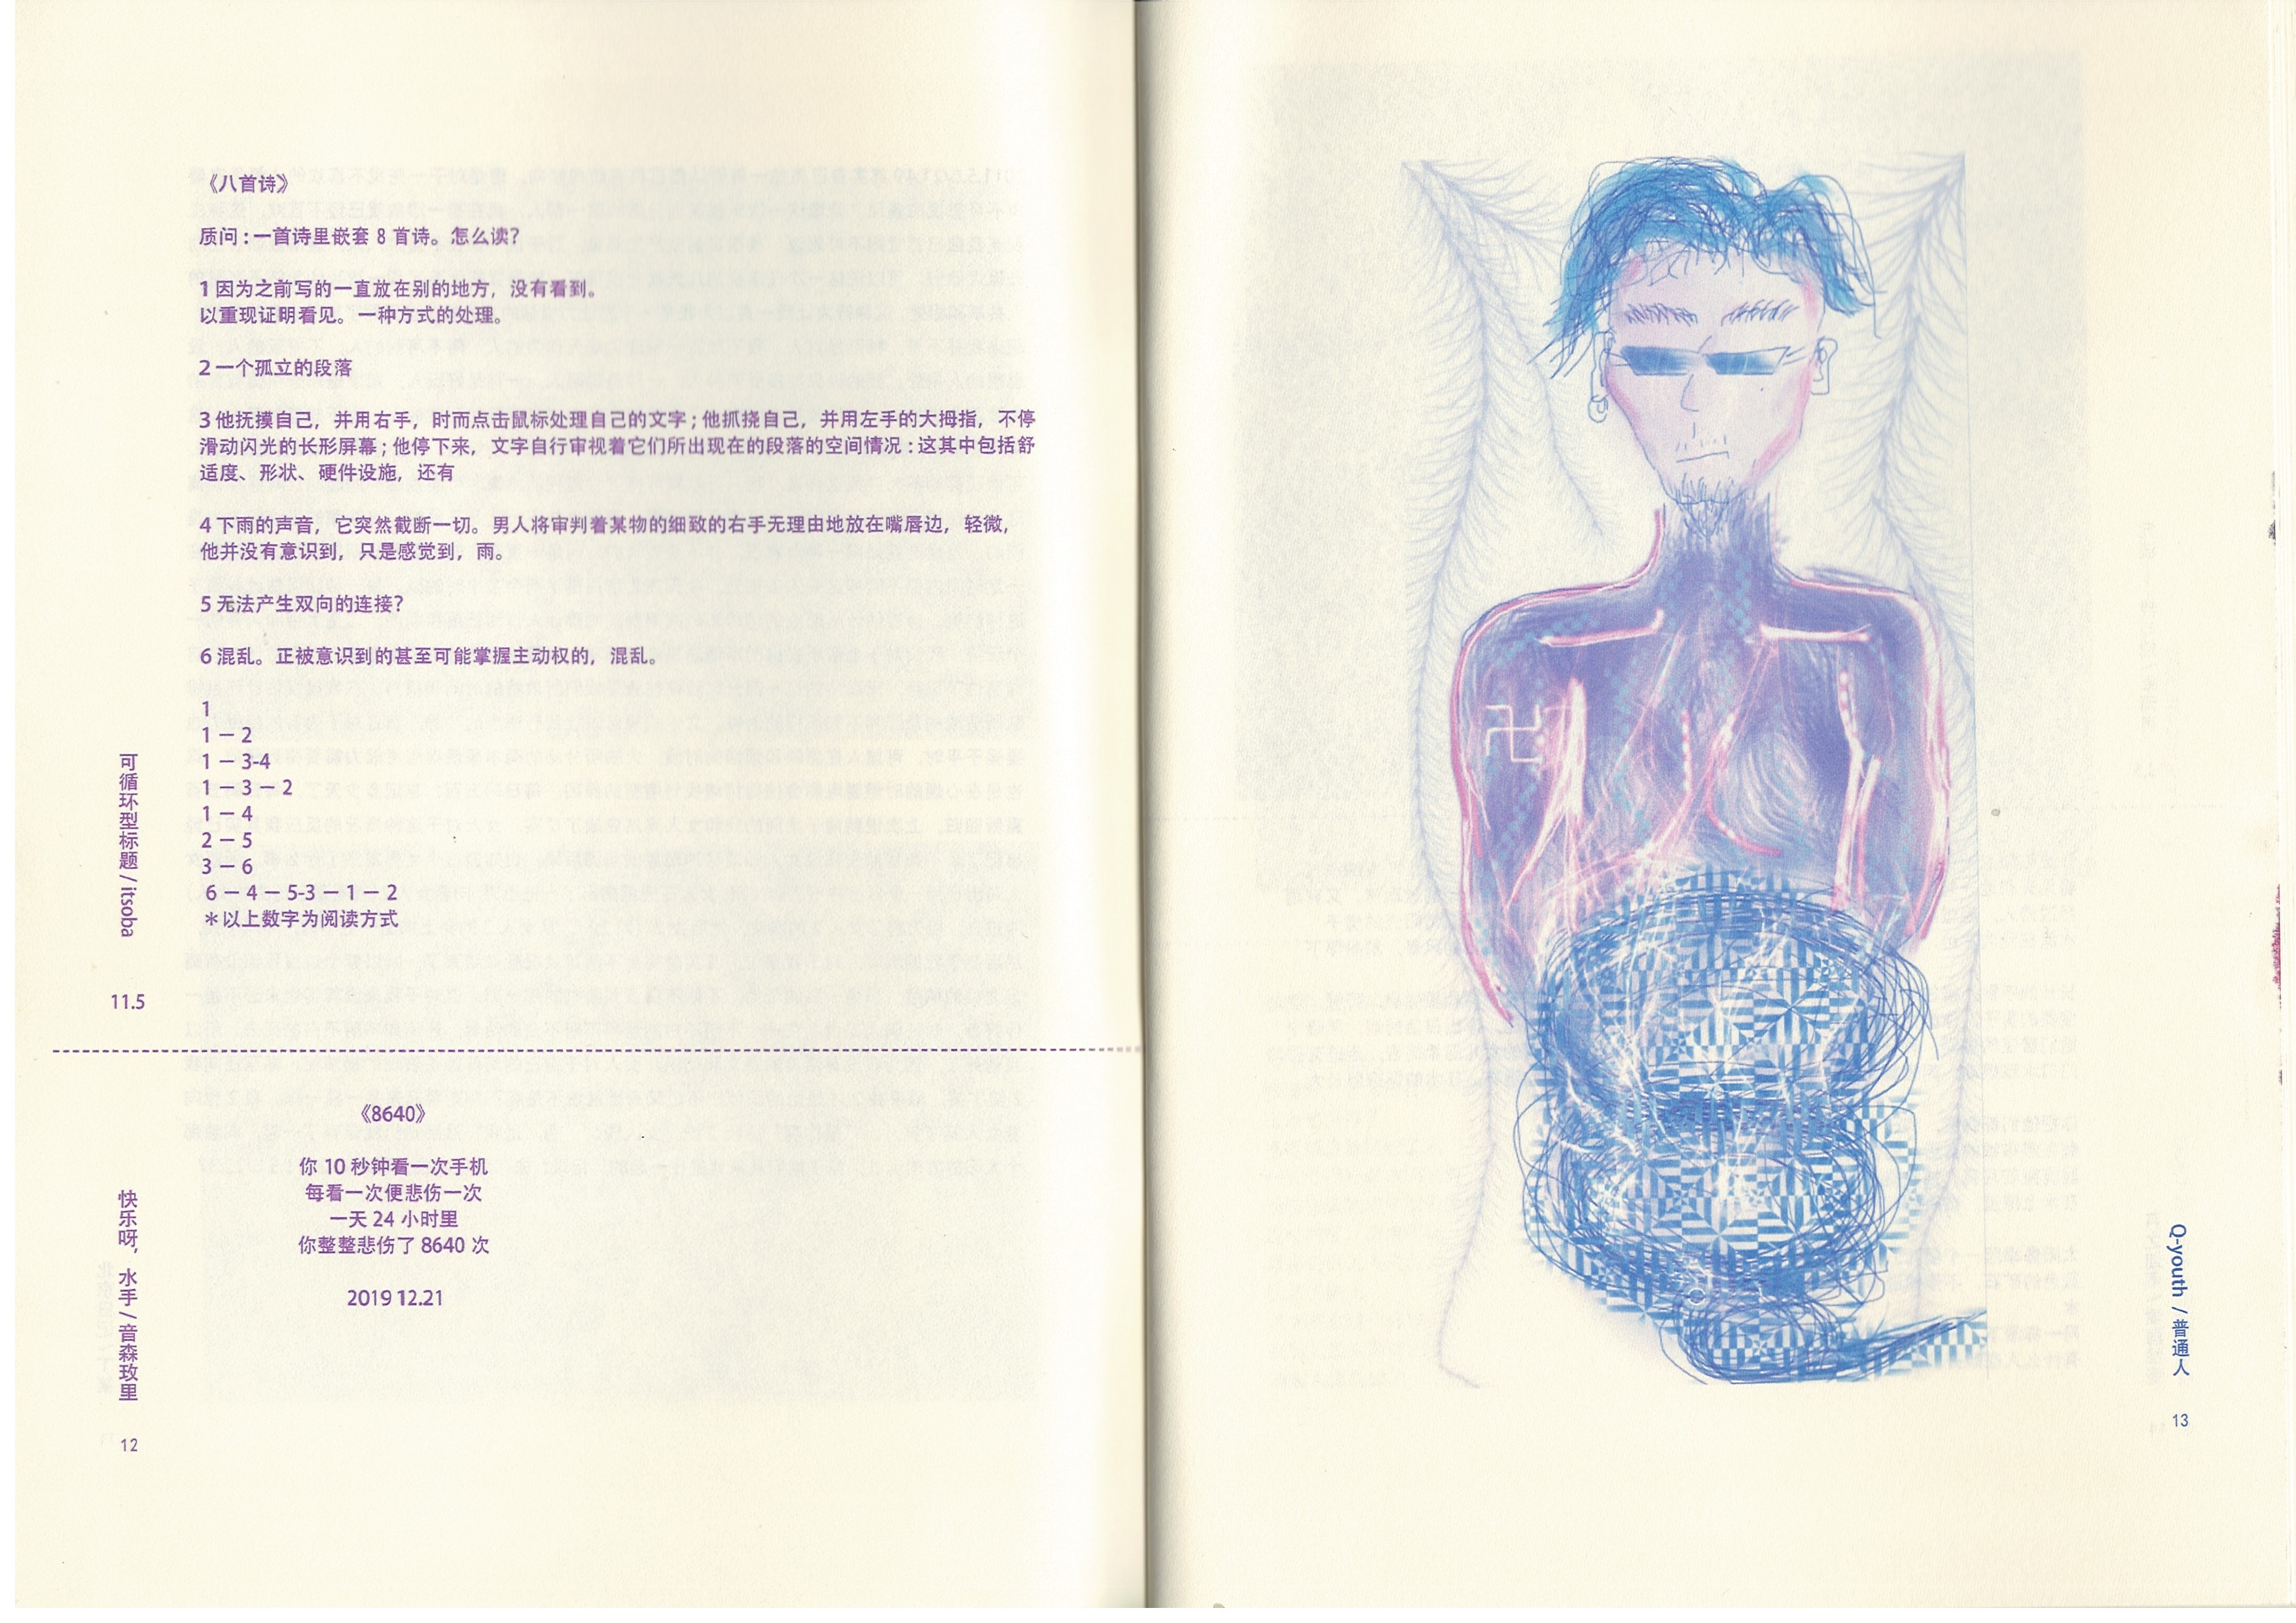 《八首诗》
质问：一首诗里嵌套 8 首诗。怎么读？
1 因为之前写的一直放在别的地方，没有看到。
以重现证明看见。一种方式的处理。
2 一个孤立的段落
3 他抚摸自己，并用右手，时而点击鼠标处理自己的文字；他抓挠自己，并用左手的大拇指，不停
滑动闪光的长形屏幕；他停下来，文字自行审视着它们所出现在的段落的空间情况：这其中包括舒
适度、形状、硬件设施，还有
4 下雨的声音，它突然截断一切。男人将审判着某物的细致的右手无理由地放在嘴唇边，轻微，
他并没有意识到，只是感觉到，雨。
5 无法产生双向的连接？
6 混乱。正被意识到的甚至可能掌握主动权的，混乱。
1
1 － 2
1 － 3-4
1 － 3 － 2
1 － 4
2 － 5
3 － 6
6 － 4 － 5-3 － 1 － 2
＊以上数字为阅读方式
可循环型标题 / itsoba
11.5
《8640》
你 10 秒钟看一次手机
每看一次便悲伤一次
一天 24 小时里
你整整悲伤了 8640 次
2019 12.21
快乐呀，水手 / 音森玫里
12
卍
Q-youth / 普通人
13